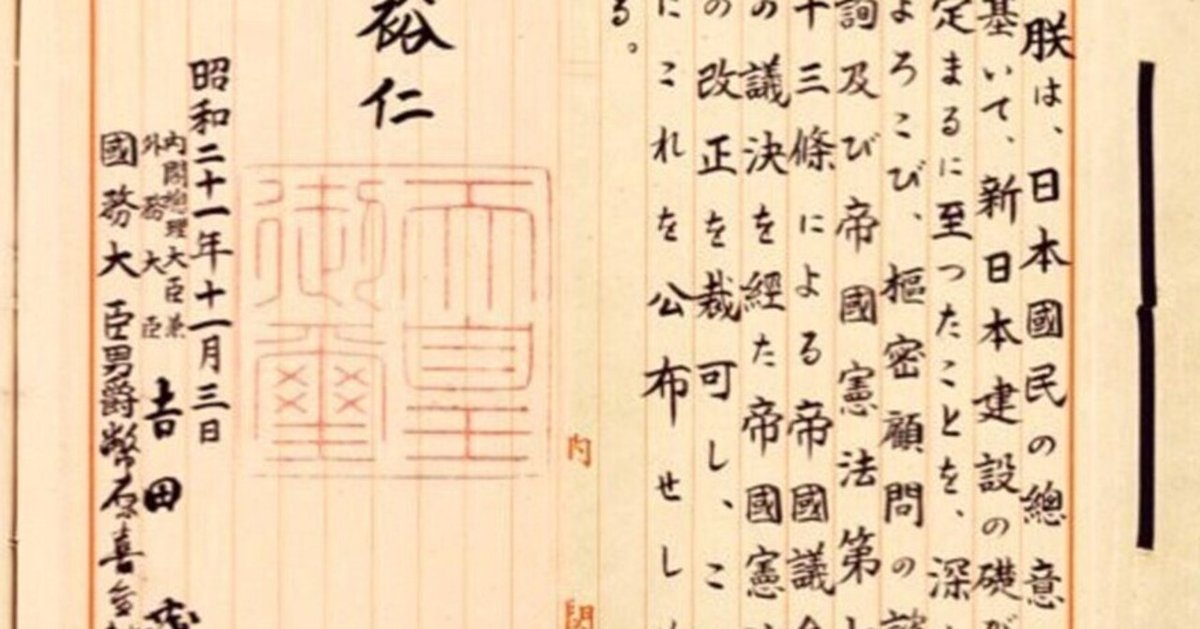 朕は、日本國民の總意
基いて、新日本建設の礎が
定まるに至つたことを、深
よろこび、樞密顧問の諮
詢及び帝國憲法第
十三條による帝國議
の議決を經た帝國憲
の改正を裁可し、こ
にこれを公布せし
る。
内閣
裕仁
天皇
御璽
昭和二十一年十一月三日
内閣總理大臣兼
外務大臣 吉田茂
國務大臣男爵幣原喜